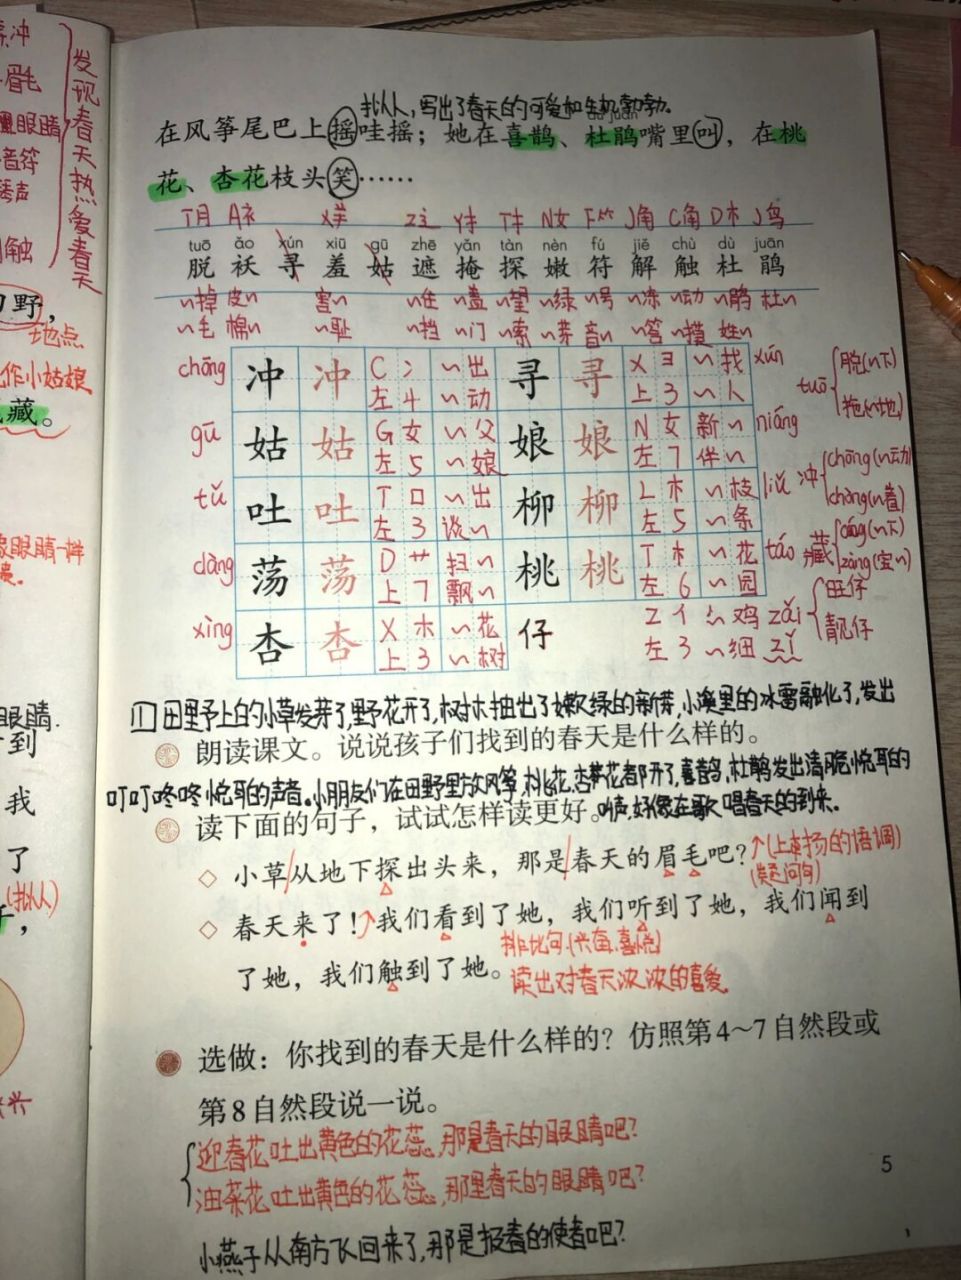 拟人,写出了春天的可爱和生机勃勃。
dù juān
在风筝尾巴上摇哇摇；她在喜鹊、杜鹃嘴里叫，在桃
花、杏花枝头笑……
T月 A衤 X羊 Z辶 Y扌 T扌 N女 F⺮ J角 C角 D木 J鸟
tuō ǎo xún xiū gū zhē yǎn tàn nèn fú jiě chù dù juān
脱 袄 寻 羞 姑 遮 掩 探 嫩 符 解 触 杜 鹃
~掉 皮~ 害~ ~住 ~盖 ~望 ~绿 ~号 ~冻 ~动 ~鹃 杜~
~毛 棉~ ~耻 ~挡 ~门 ~索 ~芽 音~ ~答 ~摸 姓~
chōng 冲 冲 C 冫 ~出 寻 寻 X 彐 ~找 xún
左 4 ~动 上 3 ~人
gū 姑 姑 G 女 ~父 娘 娘 N 女 新~ niáng
左 5 ~娘 左 7 伴~
tǔ 吐 吐 T 口 ~出 柳 柳 L 木 ~枝 liǔ
左 3 谈~ 左 5 ~条
dàng 荡 荡 D 艹 扫~ 桃 桃 T 木 ~花 táo
上 7 飘~ 左 6 ~园
xìng 杏 杏 X 木 ~花 仔 Z 亻 ~鸡 zǎi
上 3 ~树 左 3 ~细 zǐ
tuō 脱(~下)
拖(~地)
冲 chōng(~动)
chòng(~着)
藏 cáng(~下)
zàng(宝~)
旺仔
靓仔
田野上的小草发芽了,野花开了,树木抽出了嫩绿的新芽,小溪里的冰雪融化了,发出
朗读课文。说说孩子们找到的春天是什么样的。
叮叮咚咚悦耳的声音。小朋友们在田野里放风筝,桃花、杏花都开了,喜鹊、杜鹃发出清脆悦耳的
读下面的句子，试试怎样读更好。
叫声,好像在歌唱春天的到来。
小草/从地下探出头来，那是/春天的眉毛吧？↗(上扬的语调)
(疑问句)
春天来了！↗我们看到了她，我们听到了她，我们闻到
排比句.(兴奋、喜悦)
了她，我们触到了她。
读出对春天浓浓的喜爱。
选做：你找到的春天是什么样的？仿照第4～7自然段或
第8自然段说一说。
迎春花吐出黄色的花蕊,那是春天的眼睛吧?
油菜花吐出黄色的花蕊,那是春天的眼睛吧?
小燕子从南方飞回来了,那是报春的使者吧?
5
发现春天热爱春天
眉毛
眼睛
音符
琴声
触
野，
地点
作小姑娘
藏。
眼睛一样
眼睛.
到
我
了
(拟人)